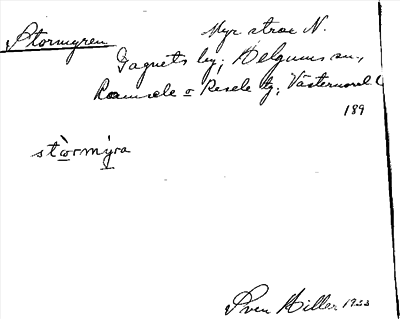 Stormyren
Myr strax N.
Gaguets by; Helgums sn,
Ramsele o Resele tg; Västernorrl. l
189
stòrmýra
Sven Hiller 1933